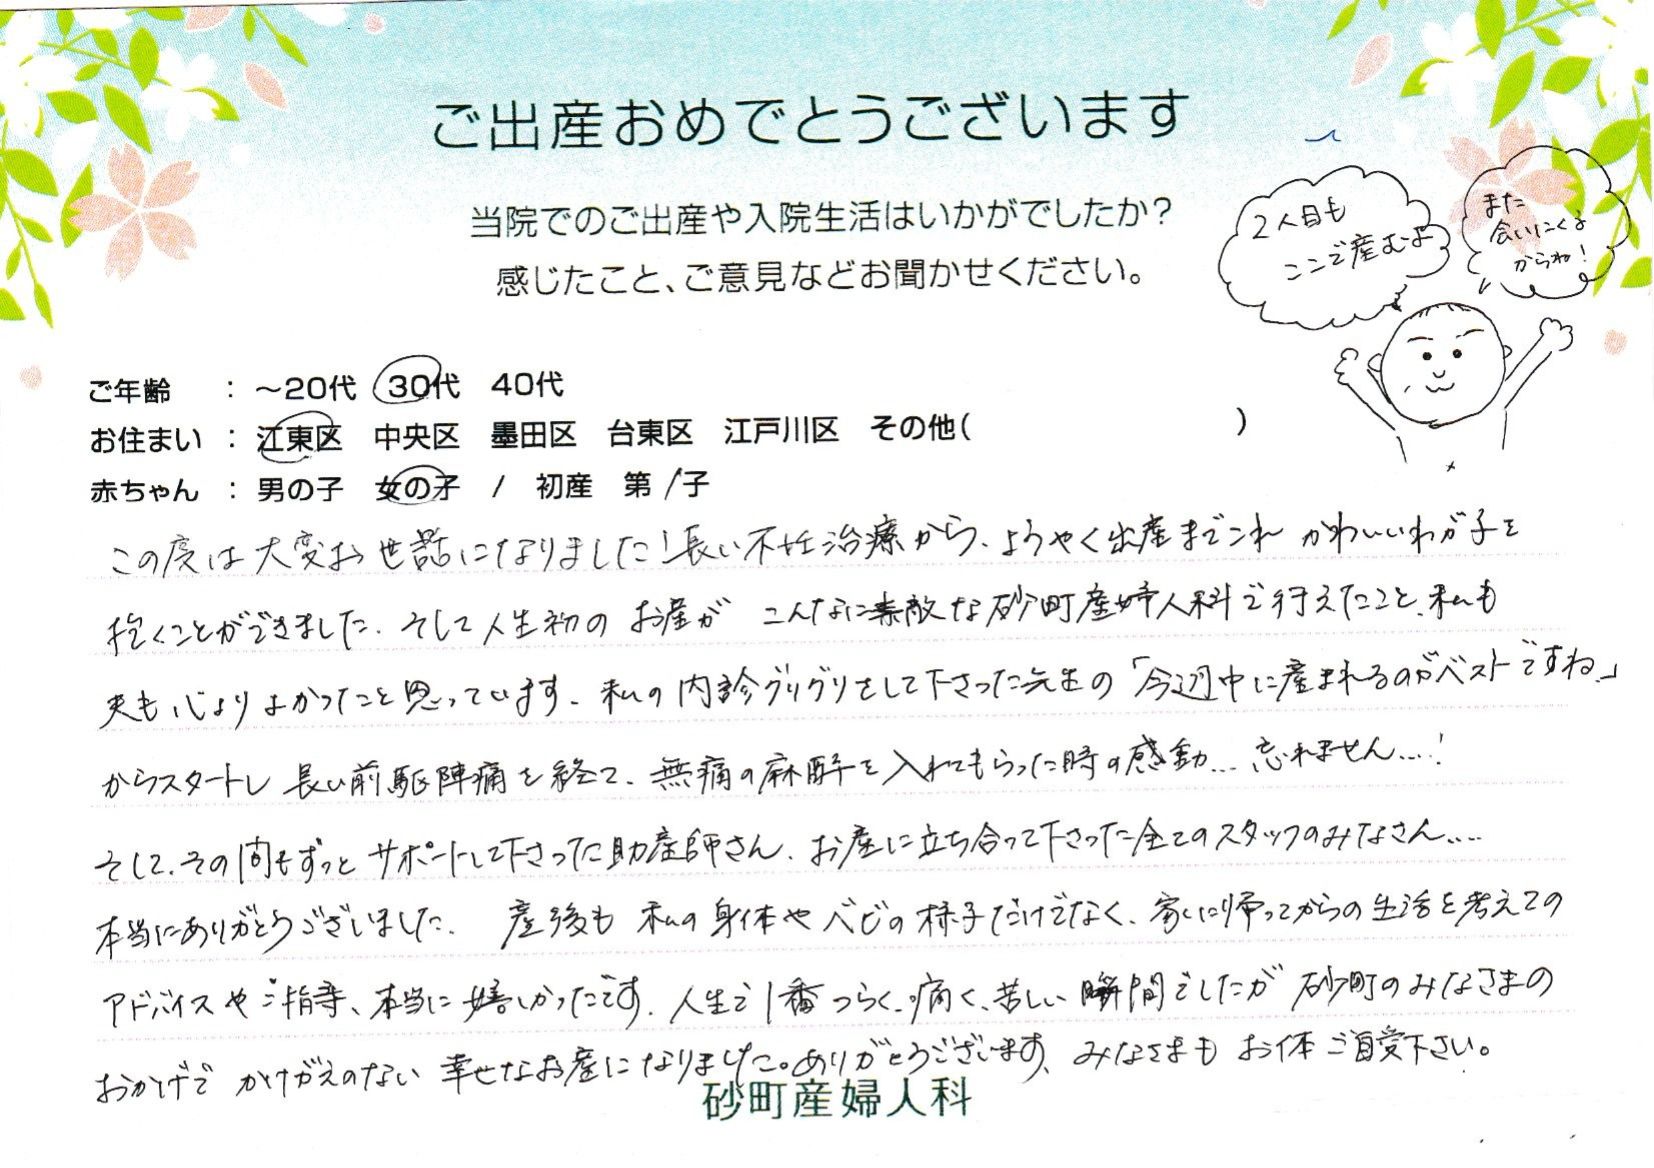 ご出産おめでとうございます
当院でのご出産や入院生活はいかがでしたか?
感じたこと、ご意見などお聞かせください。
2人目も
ここで産むよ
また
会いにくる
からね!
ご年齢 : ～20代 30代 40代
お住まい : 江東区 中央区 墨田区 台東区 江戸川区 その他( )
赤ちゃん : 男の子 女の子 / 初産 第1子
この度は大変お世話になりました!長い不妊治療から、ようやく出産までこれ かわいいわが子を
抱くことができました。そして人生初の お産が こんなに素敵な砂町産婦人科で行えたこと、私も
夫も心よりよかったこと思っています。私の内診グリグリをして下さった先生の「今週中に産まれるのがベストですね。」
からスタートし 長い前駆陣痛を経て、無痛の麻酔を入れてもらった時の感動… 忘れません….!
そして、その間もずっと サポートして下さった助産師さん、お産に立ち合って下さった全てのスタッフのみなさん….
本当にありがとうございました。 産後も 私の身体や ベビの様子だけでなく、家に帰ってからの生活を考えての
アドバイスや ご指導、本当に嬉しかったです。人生で1番つらく、痛く、苦しい 瞬間でしたが 砂町のみなさまの
おかげで かけがえのない 幸せなお産になりました。ありがとうございます、みなさまも お体ご自愛下さい。
砂町産婦人科